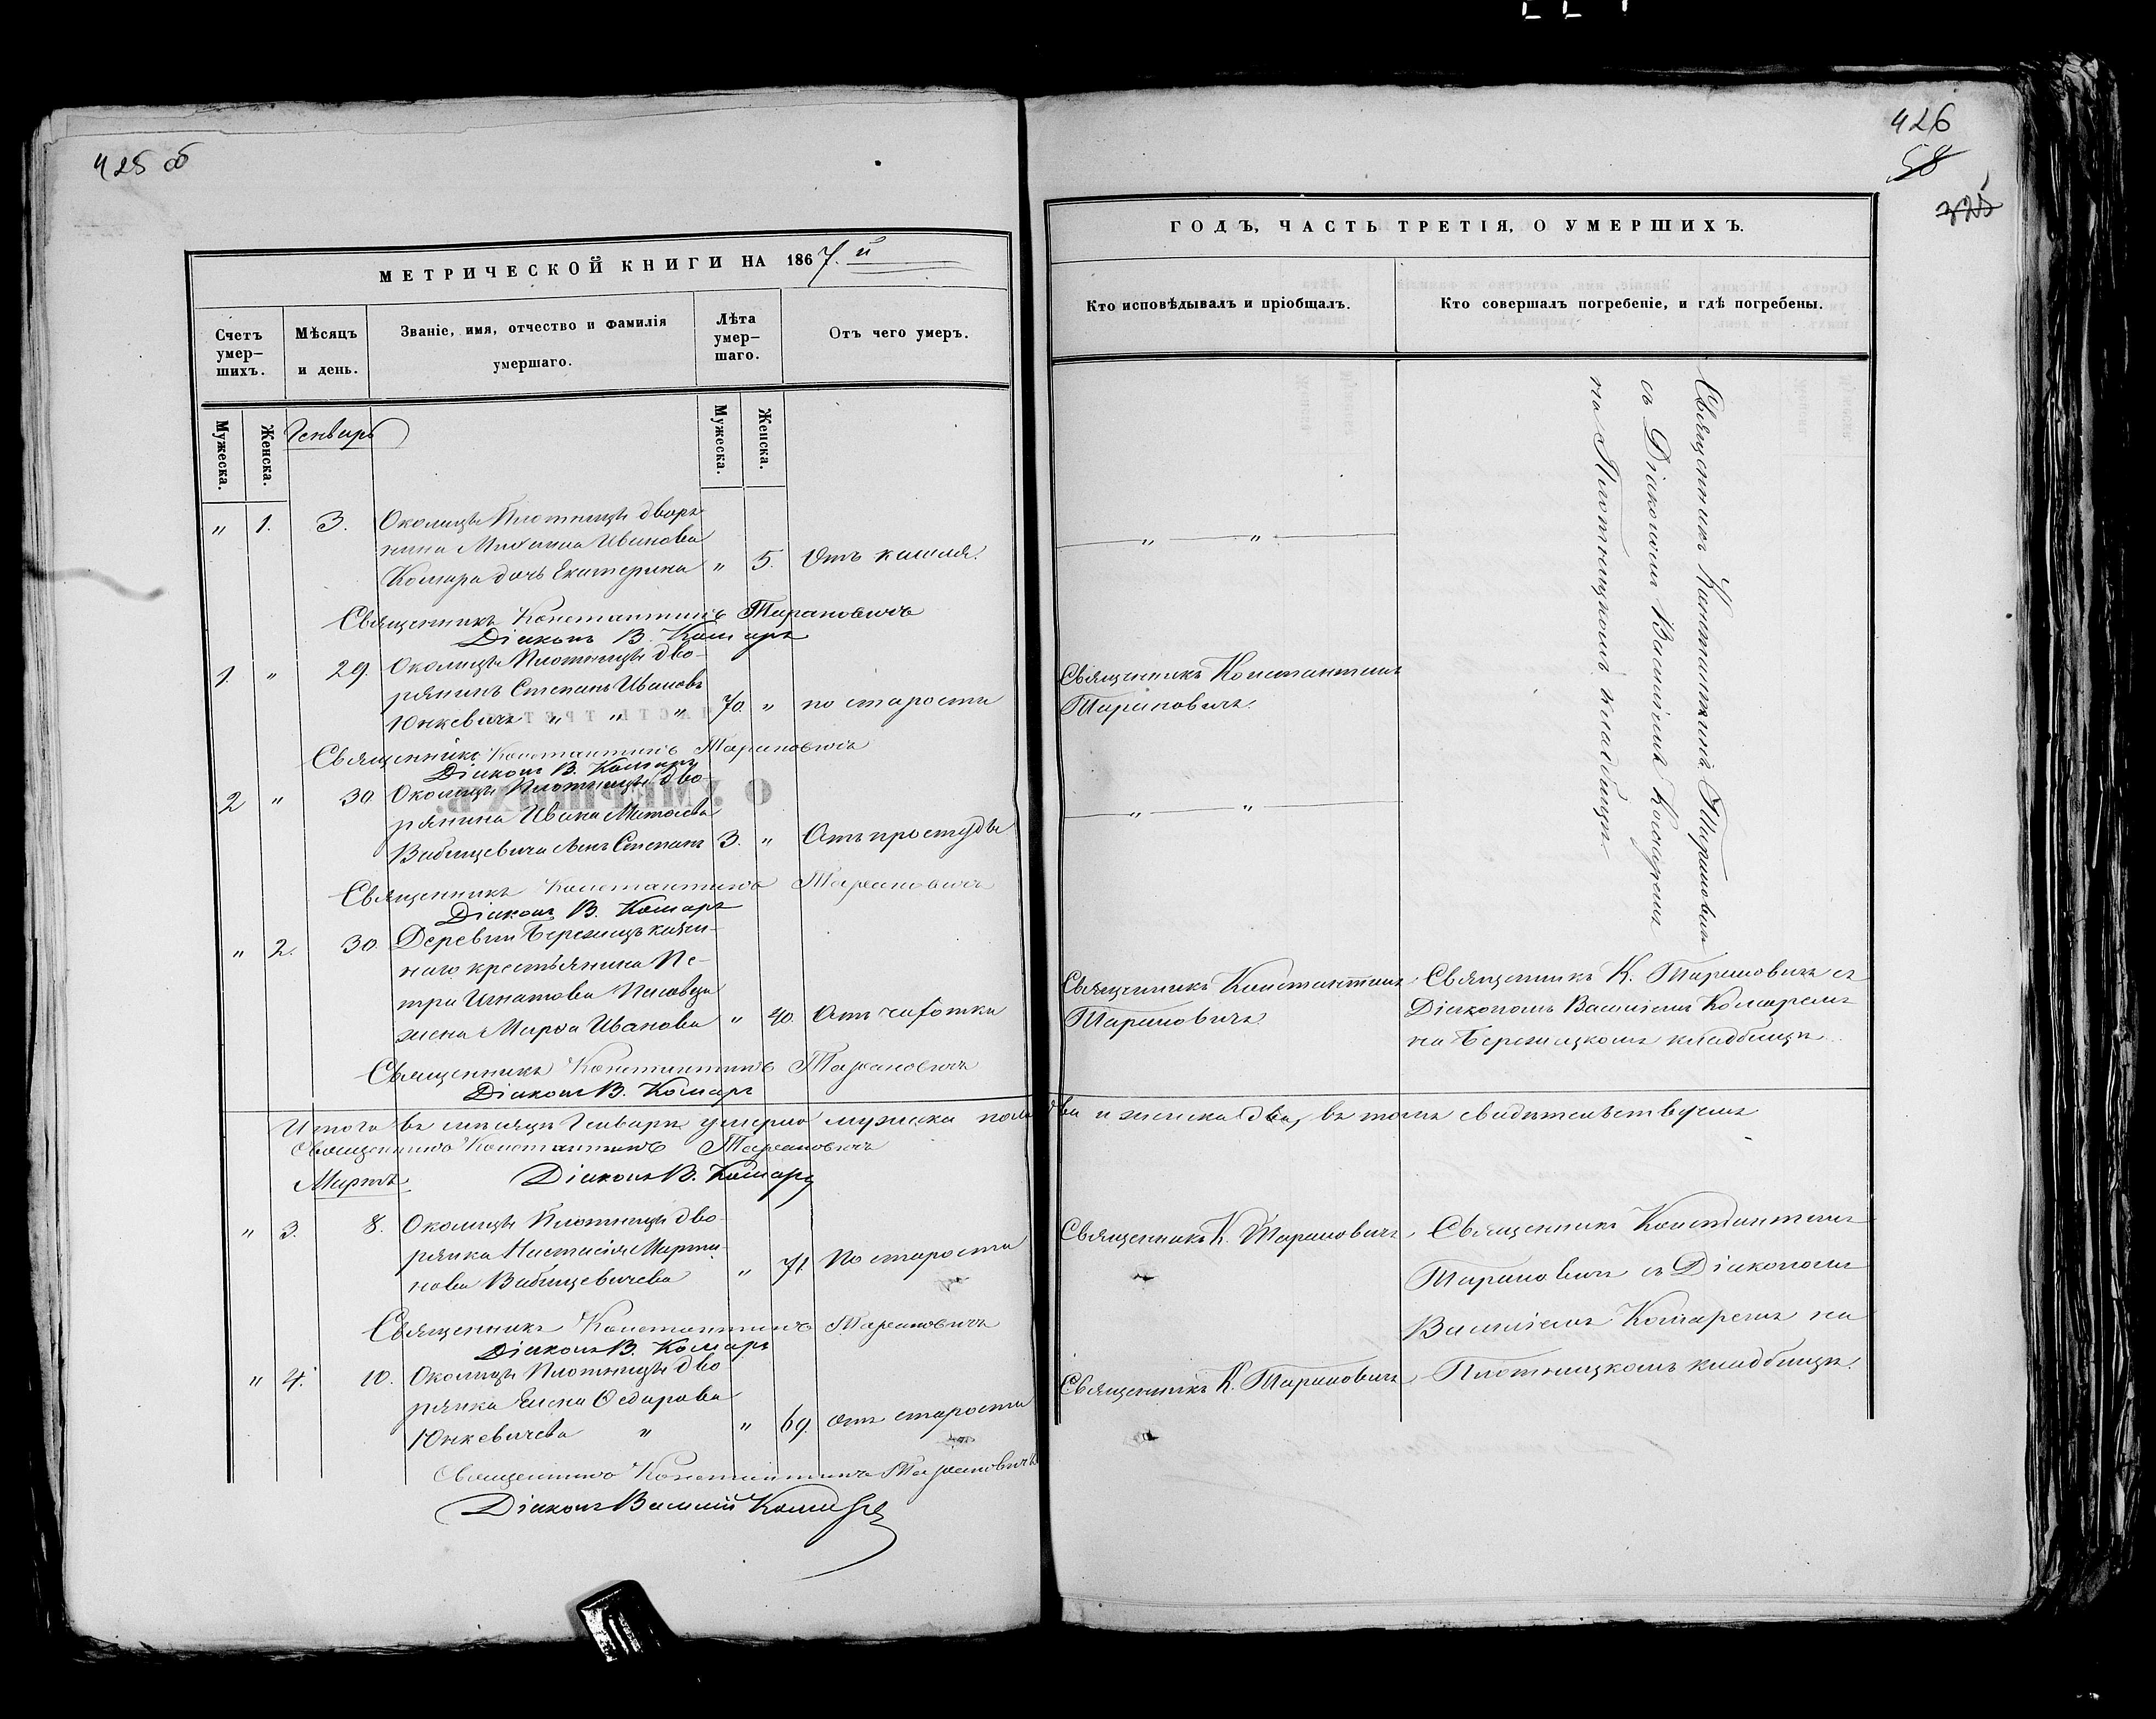 425 об
МЕТРИЧЕСКОЙ КНИГИ НА 1867.й
Счетъ умер–шихъ.
Мѣсяцъ и день.
Званіе, имя, отчество и фамилія умершаго.
Лѣта умер–шаго.
Отъ чего умеръ.
Мужеска.
Женска.
Мужеска.
Женска.
Генварь
" 1. 3. Околицы Плотницы дворя
нина Михаила Иванова
Комара дочь Екатерина " 5. Отъ кашля.
Священникъ Константинъ Таранович
Діаконъ В. Комаръ
1. " 29. Околицы Плотницы дво-
рянинъ Степанъ Ивановъ
Юнкевичъ " " " 70. " по старости
Священникъ Константинъ Тарановичъ
Діаконъ В. Комаръ
2 " 30. Околицы Плотницы дво-
рянина Ивана Матвѣева
Вабищевича сынъ Степанъ 3. " Отъ простуды
Священникъ Константинъ Тарановичъ
Діаконъ В. Комаръ
" 2. 30. Деревни Бережицъ казен-
наго крестьянина Пе-
тра Игнатова
жена Марѳа Иванова " 40. Отъ чахотки
Священникъ Константинъ Тарановичъ
Діаконъ В. Комаръ
Итого въ мѣсяцѣ Генварѣ умерло мужеска пола два и женска два, въ томъ свидѣтельствуемъ
Священникъ Константинъ Тарановичъ
Мартъ Діаконъ В. Комаръ
" 3. 8. Околицы Плотницы дво-
рянка Настасія Марти-
нова Вабищевичева " 71. По старости
Священникъ Константинъ Тарановичъ
Діаконъ В. Комаръ
" 4. 10. Околицы Плотницы дво
рянка Елена Ѳедорова
Юнкевичева " " 69. отъ старости
Священникъ Константинъ Тарановичъ
Діаконъ Василій Комаръ
426
58
325
ГОДЪ, ЧАСТЬ ТРЕТІЯ, О УМЕРШИХЪ.
Кто исповѣдывалъ и пріобщалъ.
Кто совершалъ погребеніе, и гдѣ погребены.
" "
Священникъ Константинъ
Тарановичъ.
" "
Священникъ Константинъ Тарановичъ
съ Діакономъ Василіемъ Комаремъ
на Плотницкомъ кладбищѣ
Священникъ Константинъ
Тарановичъ
Священникъ К. Тарановичъ съ
Діакономъ Василіемъ Комаремъ
на Бережицкомъ кладбищѣ.
Священникъ К. Тарановичъ
Священникъ Константинъ
Тарановичъ съ Діакономъ
Василіемъ Комаремъ на
Священникъ К. Тарановичъ
Плотницкомъ кладбищѣ.